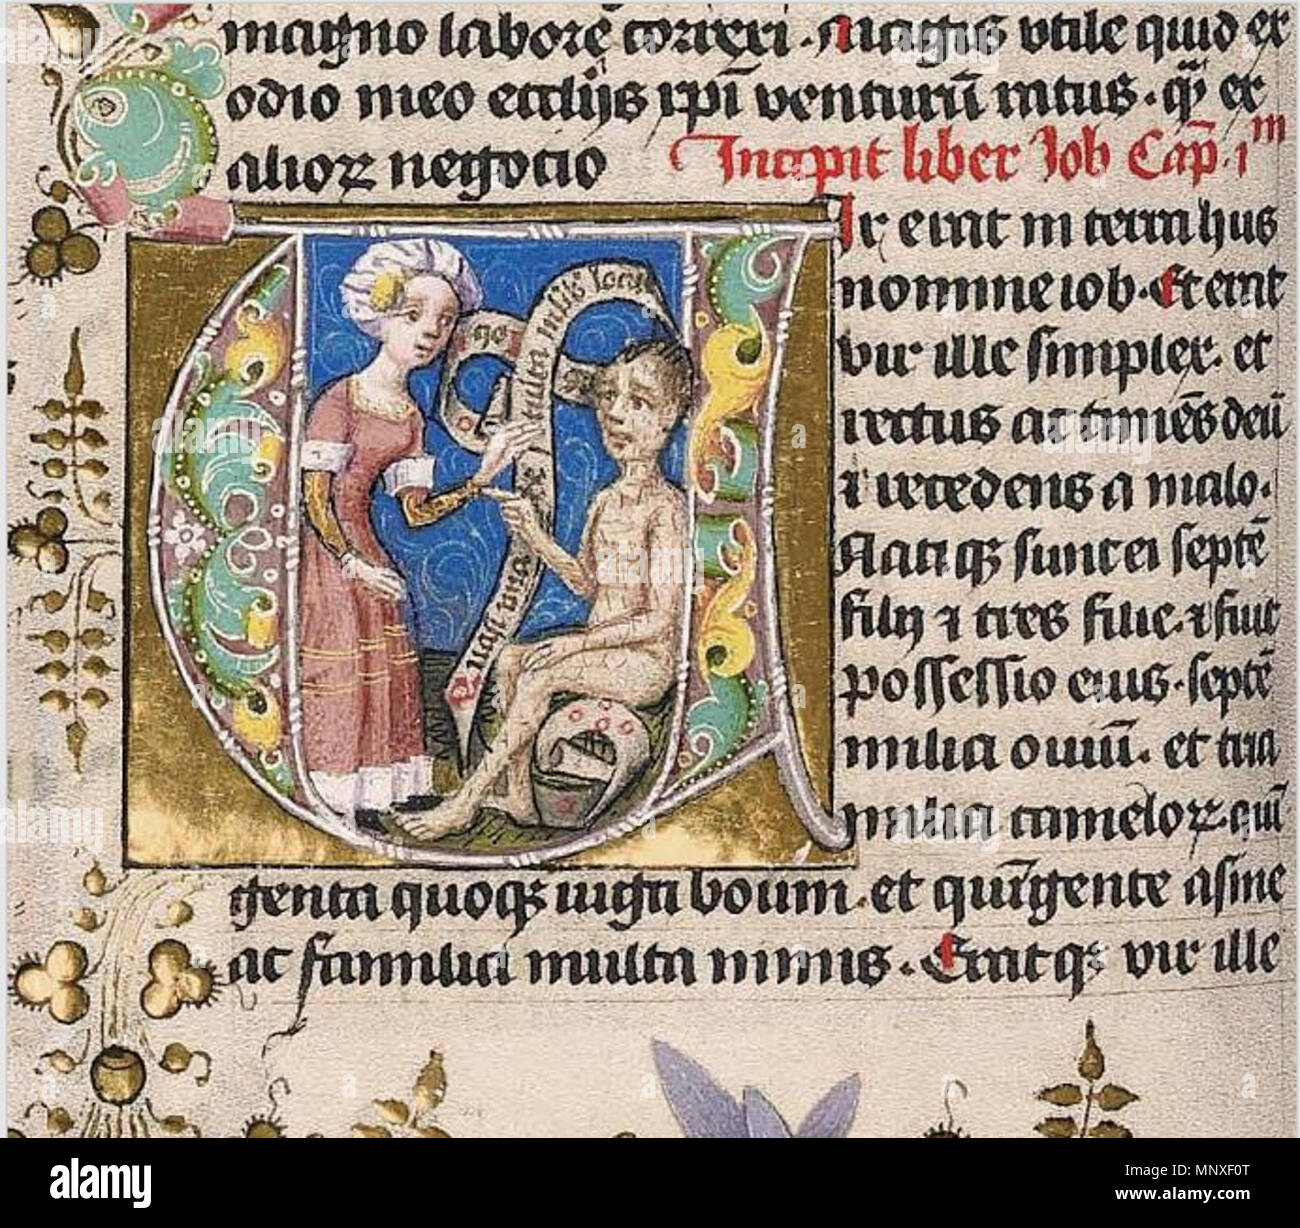 magno labore correxi. Magis vtile quid ex
odio meo eccl'ijs xp̄i venturū ratus. q̄ȝ ex
alioꝝ negocio Incipit liber Job Cap̄. 1ᵐ
Ir erat in terra hus
nomine iob. Et erat
vir ille simplex. et
rectus ac timēs deū
⁊ recedens a malo.
Natiqꝫ sunt ei septē
filij ⁊ tres filie. ⁊ fuit
possessio eius. septē
milia ouiū. et tria
milia cameloꝝ. quī
genta quoqꝫ iuga boum. et quīgente asine
ac familia multa nimis. Eratqꝫ vir ille
Quasi una
alamy
Image ID: MNXF0T
www.alamy.com